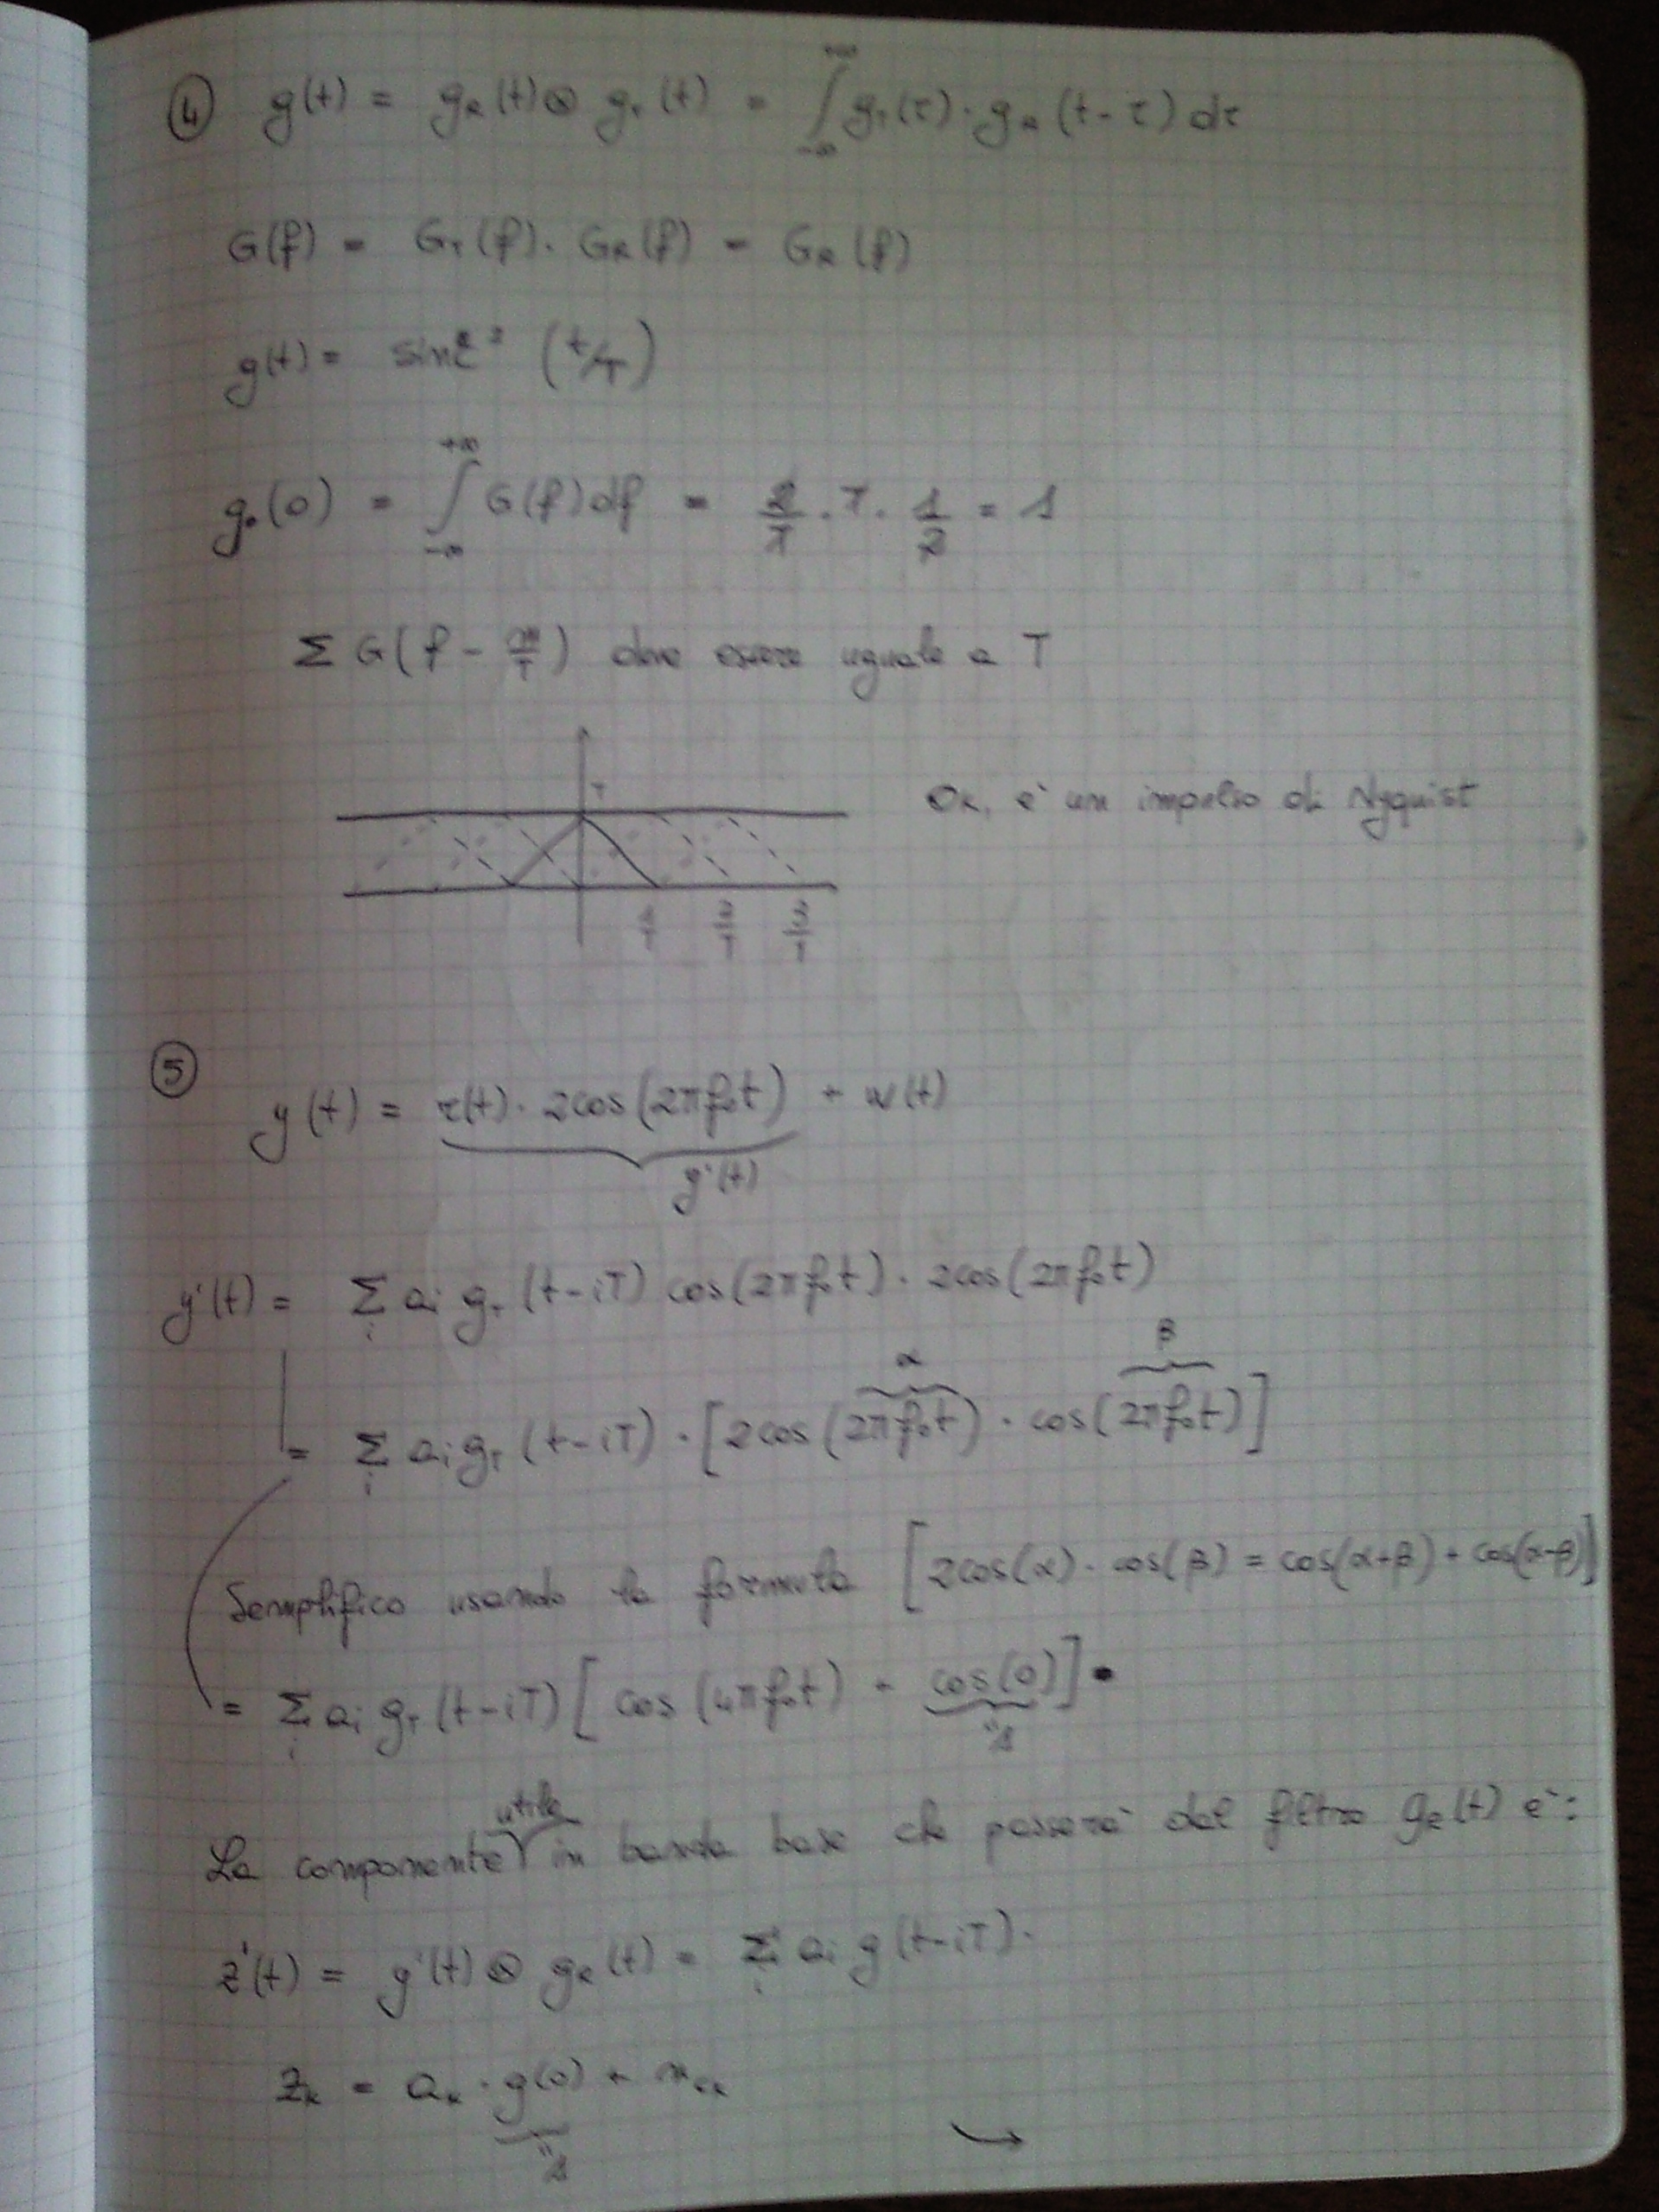 ④ g(t) = g_R(t) ⊗ g_T(t) = ∫_{-∞}^{+∞} g_T(τ) · g_R(t-τ) dτ
G(f) = G_T(f) · G_R(f) = G_R(f)
g(t) = sinc² (t/T)
g_0(0) = ∫_{-∞}^{+∞} G(f) df = 2/T · T · 1/2 = 1
Σ G(f - m/T) deve essere uguale a T
T
Ok, è un impulso di Nyquist
1/T 2/T 3/T
⑤
y(t) = r(t) · 2cos(2πf₀t) + w(t)
y'(t)
y'(t) = Σ_i a_i g_T(t-iT) cos(2πf₀t) · 2cos(2πf₀t)
α β
= Σ_i a_i g_T(t-iT) · [2cos(2πf₀t) · cos(2πf₀t)]
Semplifico usando la formula [2cos(α) · cos(β) = cos(α+β) + cos(α-β)]
= Σ_i a_i g_T(t-iT) [cos(4πf₀t) + cos(0)]
"1
utile
La componente in banda base che passerà dal filtro g_R(t) è:
z'(t) = y'(t) ⊗ g_R(t) = Σ_i a_i g(t-iT).
z_k = a_k · g(0) + n_ck
"1
→